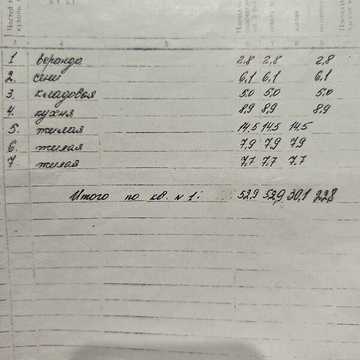 1 веранда 2,8 2,8 2,8
2. сени 6,1 6,1 6,1
3. кладовая 5,0 5,0 5,0
4. кухня 8,9 8,9 8,9
5. жилая 14,5 14,5 14,5
6. жилая 7,9 7,9 7,9
7. жилая 7,7 7,7 7,7
Итого по кв. N 1: 52,9 52,9 30,1 22,8